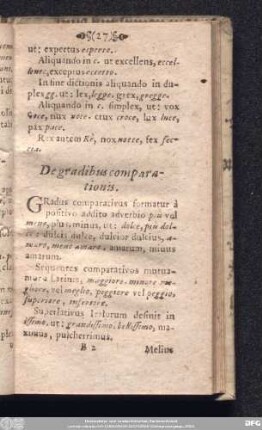 (27)
ut; expertus esperto.
Aliquando in c. ut excellens, eccel-
lente, exceptus eccetto.
In fine dictionis aliquando in du-
plex gg. ut: lex, legge. grex, gregge.
Aliquando in c. simplex, ut: vox
voce, nux noce. crux croce, lux luce,
pax pace.
Rex autem Rè, nox notte, fex fec-
cia.
De gradibus compara-
tionis.
Gradus comparativus formatur à
positivo addito adverbio più vel
meno, plus, minus, ut: dolce, più dol-
ce, dulcis dulce, dulcior dulcius, a-
maro, meno amaro, amarum, minus
amarum.
Sequentes comparativos mutua-
mur à Latinis, maggiore, minore
gliore, vel meglio, peggiore vel peggio,
superiore, inferiore.
Superlativus Italorum definit in
issimo, ut: grandissimo, bellissimo, ma-
ximus, pulcherrimus.
B 2 Melius